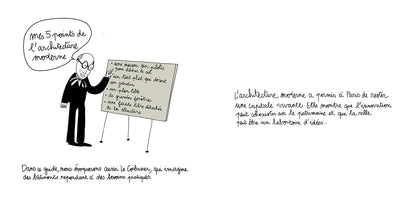 mes 5 points de
l'architecture
moderne
- une maison sur pilotis
pour libérer le sol
- un toit plat qui devient
un jardin
- un plan libre
- de grandes fenêtres
- une façade libre détachée
de la structure
Dans ce guide, nous évoquerons aussi Le Corbusier, qui imagine
des bâtiments répondant à des besoins pratiques.
L'architecture moderne a permis à Paris de rester
une capitale vivante. Elle montre que l'innovation
peut coexister avec le patrimoine et que la ville
peut être un laboratoire d'idées.